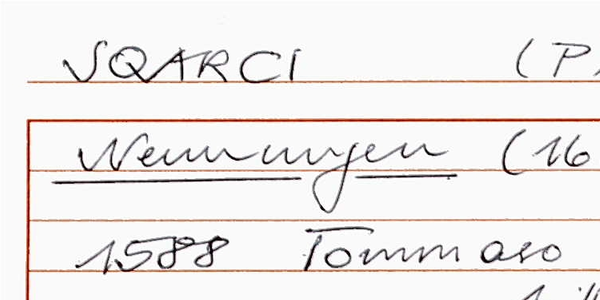 SQARCI (P
Nennungen (16
1588 Tommaso